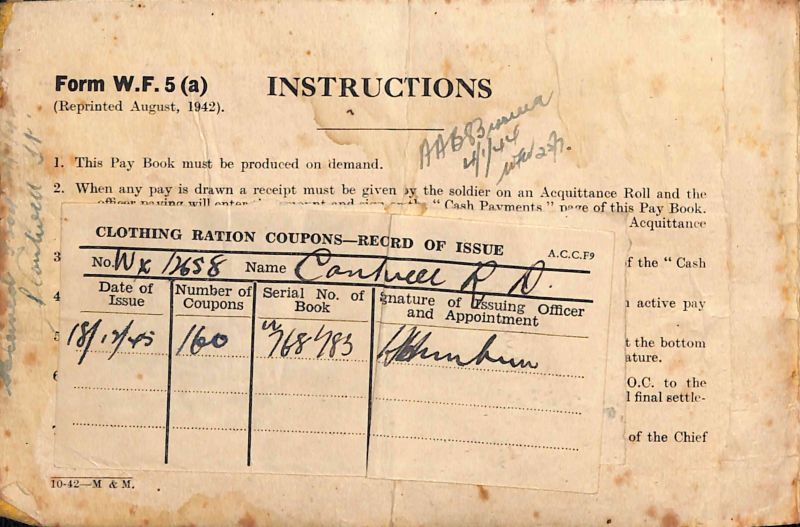 Form W.F. 5 (a)
(Reprinted August, 1942).
INSTRUCTIONS
1. This Pay Book must be produced on demand.
2. When any pay is drawn a receipt must be given by the soldier on an Acquittance Roll and the
officer paying will enter the amount and sign on the "Cash Payments" page of this Pay Book.
Acquittance
3
of the "Cash
4
active pay
5
t the bottom
ature.
6
O.C. to the
l final settle-
7
of the Chief
10-42—M & M.
CLOTHING RATION COUPONS—RECORD OF ISSUE
A.C.C.F9
No. Wx 12658 Name Cantwell R D.
Date of Issue
Number of Coupons
Serial No. of Book
Signature of Issuing Officer and Appointment
18/12/45 160 768783